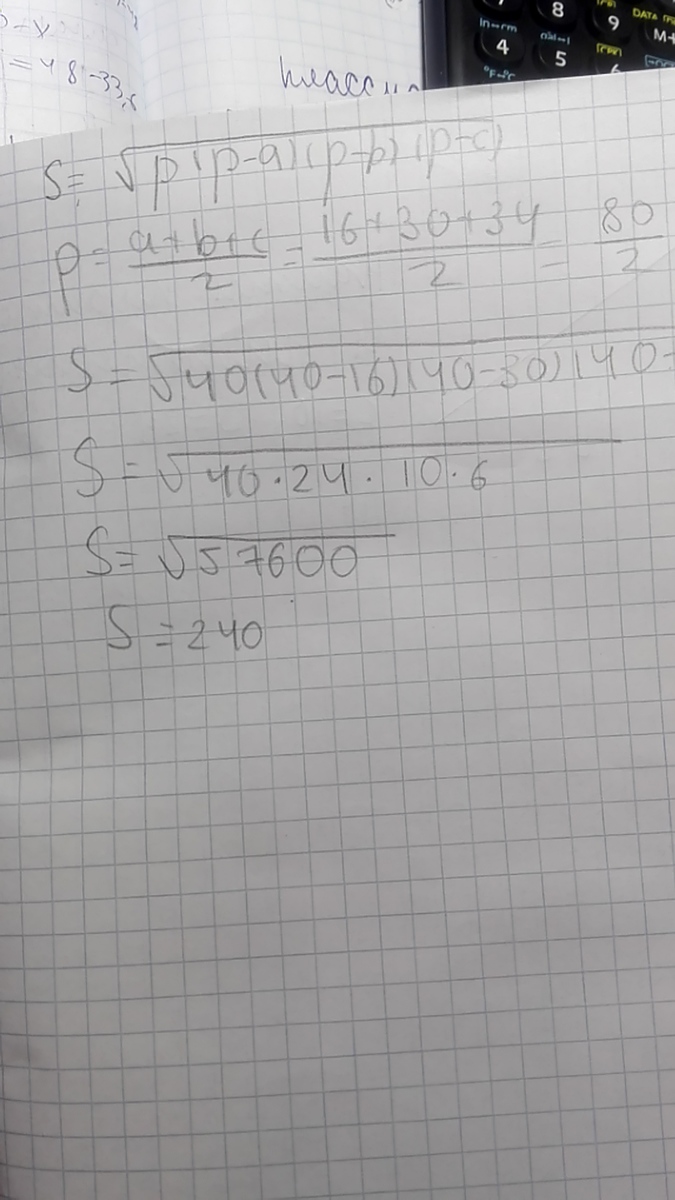 = 48-33,
класси
8
9
DATA
in↔cm
4
5
M+
°F↔°C
S= √p(p-a)(p-b)(p-c)
p= a+b+c/2 = 16+30+34/2 = 80/2
S=√40(40-16)(40-30)(40-
S=√40·24·10·6
S=√57600
S=240